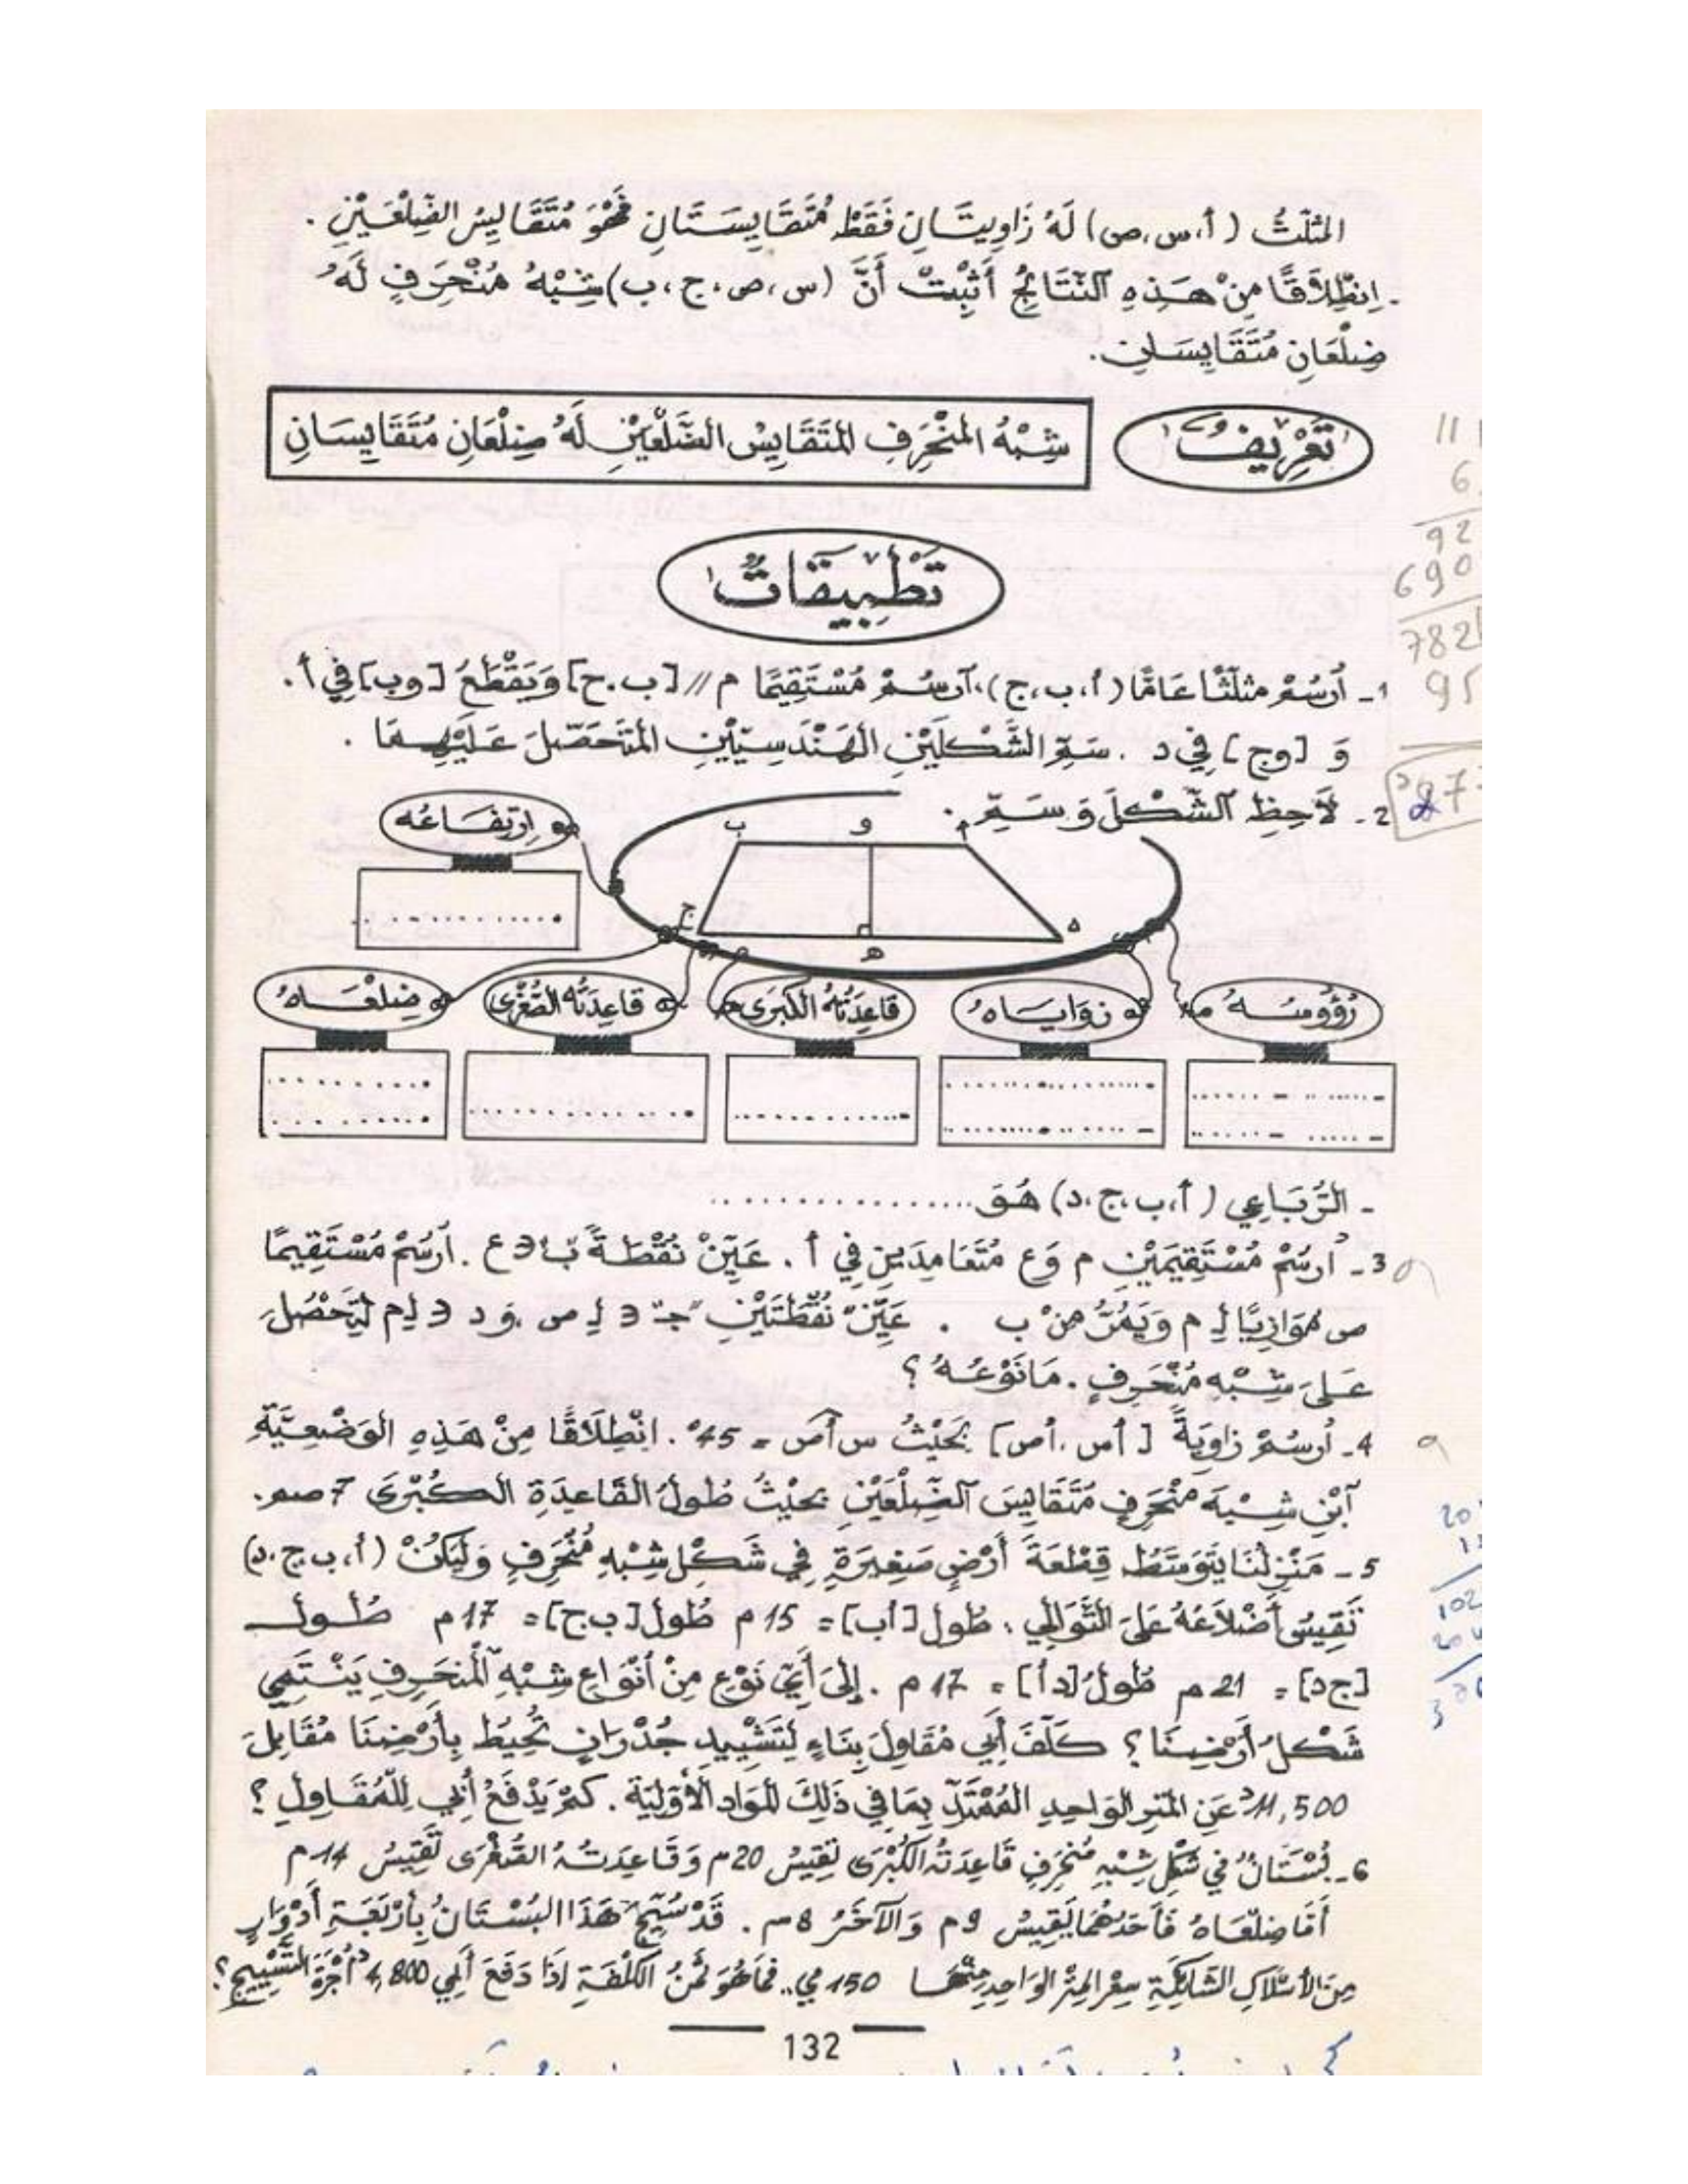 المثلّثُ (أ،س،ص) لَهُ زَاوِيتَانِ فَقَطْ مُتَقَايِسَتَانِ فَهُوَ مُتَقَايِسُ الضِّلْعَيْنِ .
- اِنْطِلَاقًا مِنْ هَذِهِ النَّتَائِجِ أَثْبِتْ أَنَّ (س،ص،ج،ب) شِبْهُ مُنْحَرِفٍ لَهُ
ضِلْعَانِ مُتَقَايِسَانِ.
تَعْرِيفٌ
شِبْهُ المُنْحَرِفِ المُتَقَايِسُ الضِّلْعَيْنِ لَهُ ضِلْعَانِ مُتَقَايِسَانِ
تَطْبِيقَاتٌ
1- أُرْسُمْ مثلّثًا عَامًّا (أ،ب،ج)، آرسُمْ مُسْتَقِيمًا م // [ب.ج] وَيَقْطَعُ [وب] فِي أ.
وَ [وج] فِي د . سَمِّ الشَّكْلَيْنِ الهَنْدَسِيَّيْنِ المُتَحَصَّلَ عَلَيْهِمَا .
2- لَاحِظِ الشَّكْلَ وَسَمِّ .
ب و أ
ج ه د
اِرْتِفَاعُه
رُؤُوسُهُ
زَوَايَاهُ
قَاعِدَتُهُ الكُبْرَى
قَاعِدَتُهُ الصُّغْرَى
ضِلْعَاهُ
- الرُّبَاعِي (أ،ب،ج،د) هُوَ ................
3- أُرسُمْ مُسْتَقِيمَيْنِ م وَع مُتَعَامِدَيْنِ فِي أ . عَيِّنْ نُقْطَةً ب∋ع . اُرسُمْ مُسْتَقِيمًا
ص مُوَازِيًا لِـ م وَيَمُرُّ مِنْ ب . عَيِّنْ نُقْطَتَيْنِ "ج" ∋ لِ ص ،وَ د ∋ لِم لِتَحْصُلَ
عَلَى شِبْهِ مُنْحَرِفٍ . مَا نَوْعُهُ ؟
4- أُرسُمْ زاوِيَةً [أس ،أص] بِحَيْثُ سأص = 45° . انْطِلَاقًا مِنْ هَذِهِ الوَضْعِيَّةِ
آبْنِ شِبْهَ مُنْحَرِفٍ مُتَقَايِسَ الضِّلْعَيْنِ بِحَيْثُ طُولُ القَاعِدَةِ الكُبْرَى 7 صم .
5- مَنْزِلُنَا يَتَوَسَّطُ قِطْعَةَ أَرْضٍ صَغِيرَةٍ فِي شَكْلِ شِبْهِ مُنْحَرِفٍ وَلْيَكُنْ (أ،ب،ج،د)
تَقِيسُ أَضْلَاعُهُ عَلَى التَّوَالِي : طُول [أب] = 15م طُول [ب ج] = 17م طُول
[ج د] = 21م طُولُ [د أ] = 17م . إِلَى أَيِّ نَوْعٍ مِنْ أَنْوَاعِ شِبْهِ المُنحَرِفِ يَنْتَمِي
شَكْلُ أَرْضِنَا ؟ كَلَّفَ أَبِي مُقَاوِلَ بِنَاءٍ لِتَشْيِيدِ جُدْرَانٍ تُحِيطُ بِأَرْضِنَا مُقَابِلَ
11,500د عَنِ المترِ الوَاحِدِ المُمْتَدِّ بِمَا فِي ذَلِكَ المَوَادِ الأَوَّلِيَةِ . كَمْ يَدْفَعُ أَبِي لِلْمُقَاوِلِ ؟
6- بُسْتَانٌ فِي شَكْلِ شِبْهِ مُنْحَرِفٍ قَاعِدَتُهُ الكُبْرَى تَقِيسُ 20م وَقَاعِدَتُهُ الصُّغْرَى تَقِيسُ 14م
أَمَّا ضِلْعَاهُ فَأَحَدُهُمَا يَقِيسُ 9م وَالآخَرُ 8م . قَدْ سُيِّجَ هَذَا البُسْتَانُ بِأَرْبَعَةِ أَدْوَارٍ
مِنَ الأَسْلَاكِ الشَّائِكَةِ سِعْرُ المِتْرِ الوَاحِدِ مِنْهَا 150مي . فَمَا هُوَ ثَمَنُ الكُلْفَةِ إِذَا دَفَعَ أَبِي 4,800د أُجْرَةَ التَّسْيِيجِ ؟
132